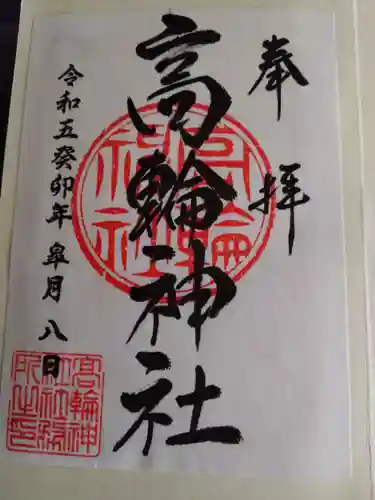 奉拝
高輪神社
令和五癸卯年皐月八日
高輪神
社社務
所之印